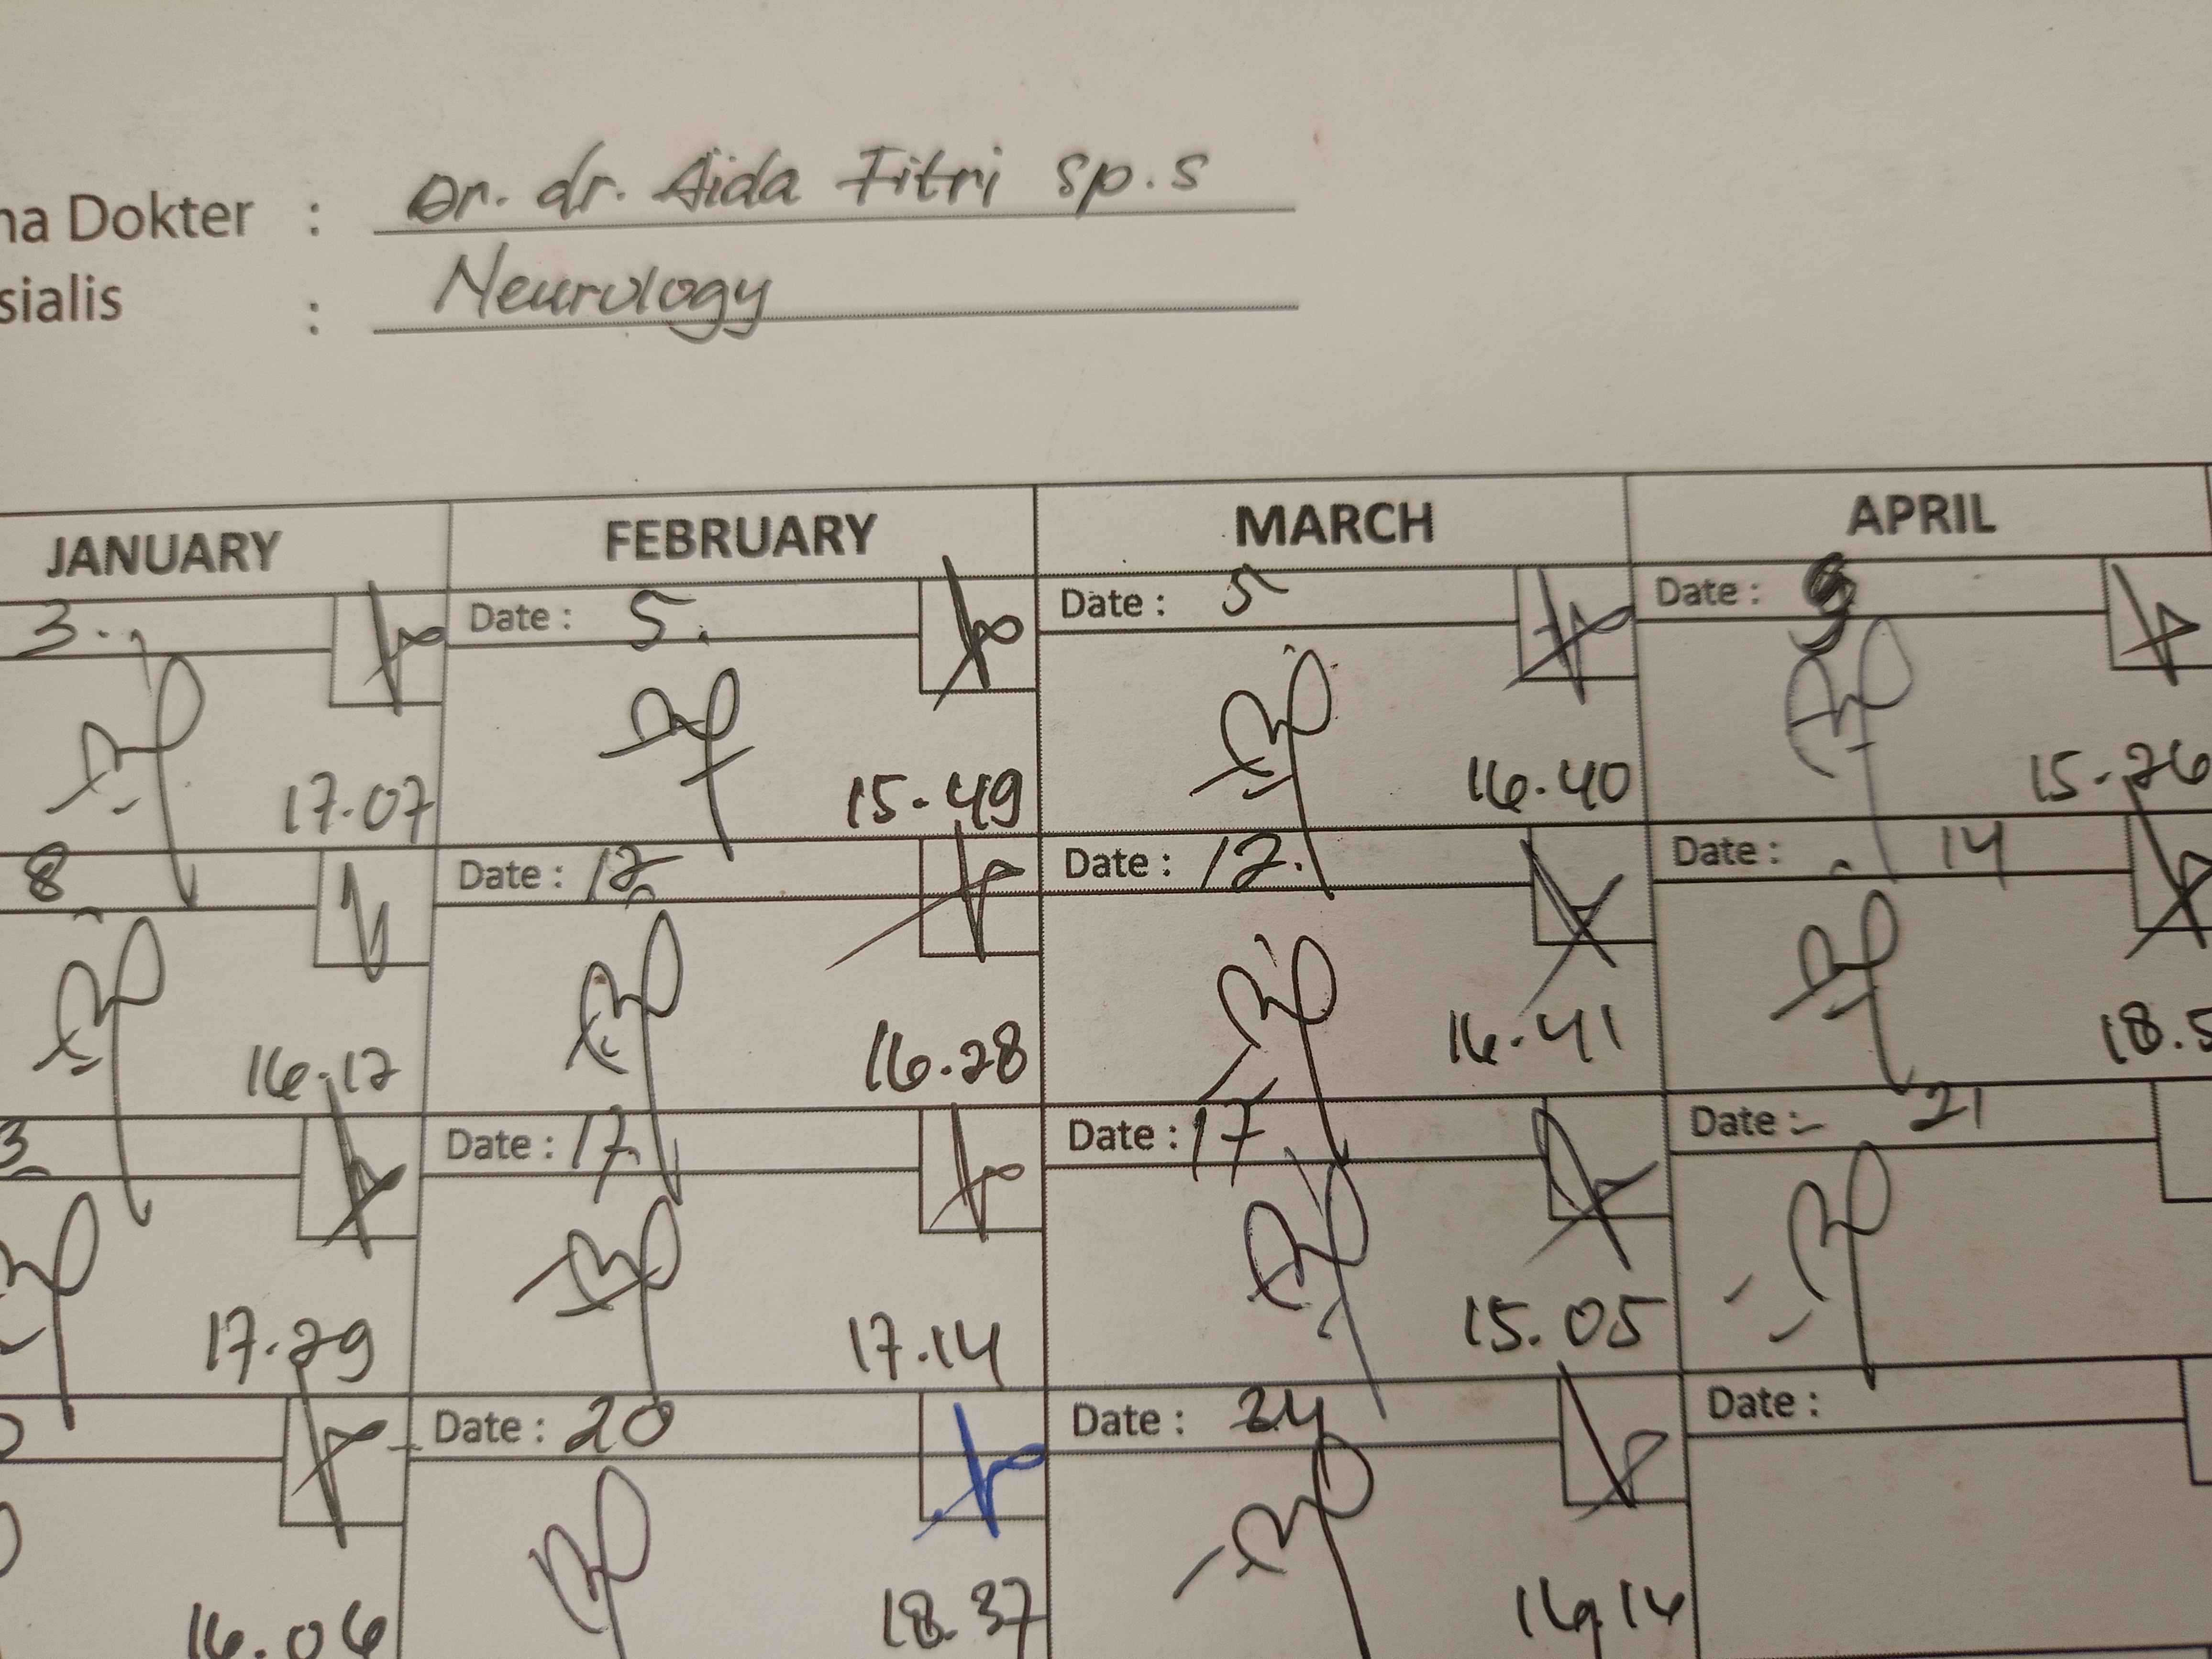 na Dokter : Dr. dr. Aida Fitri sp.s
sialis : Neurology
JANUARY FEBRUARY MARCH APRIL
3. Date : 5. Date : 5 Date : 9
17.07 15.49 16.40 15.26
8 Date : 12 Date : 12. Date : 14
16.12 16.28 16.41 18.5
3 Date : 17 Date : 17 Date : 21
17.29 17.14 15.05
Date : 20 Date : 24 Date :
16.06 18.37 16.16